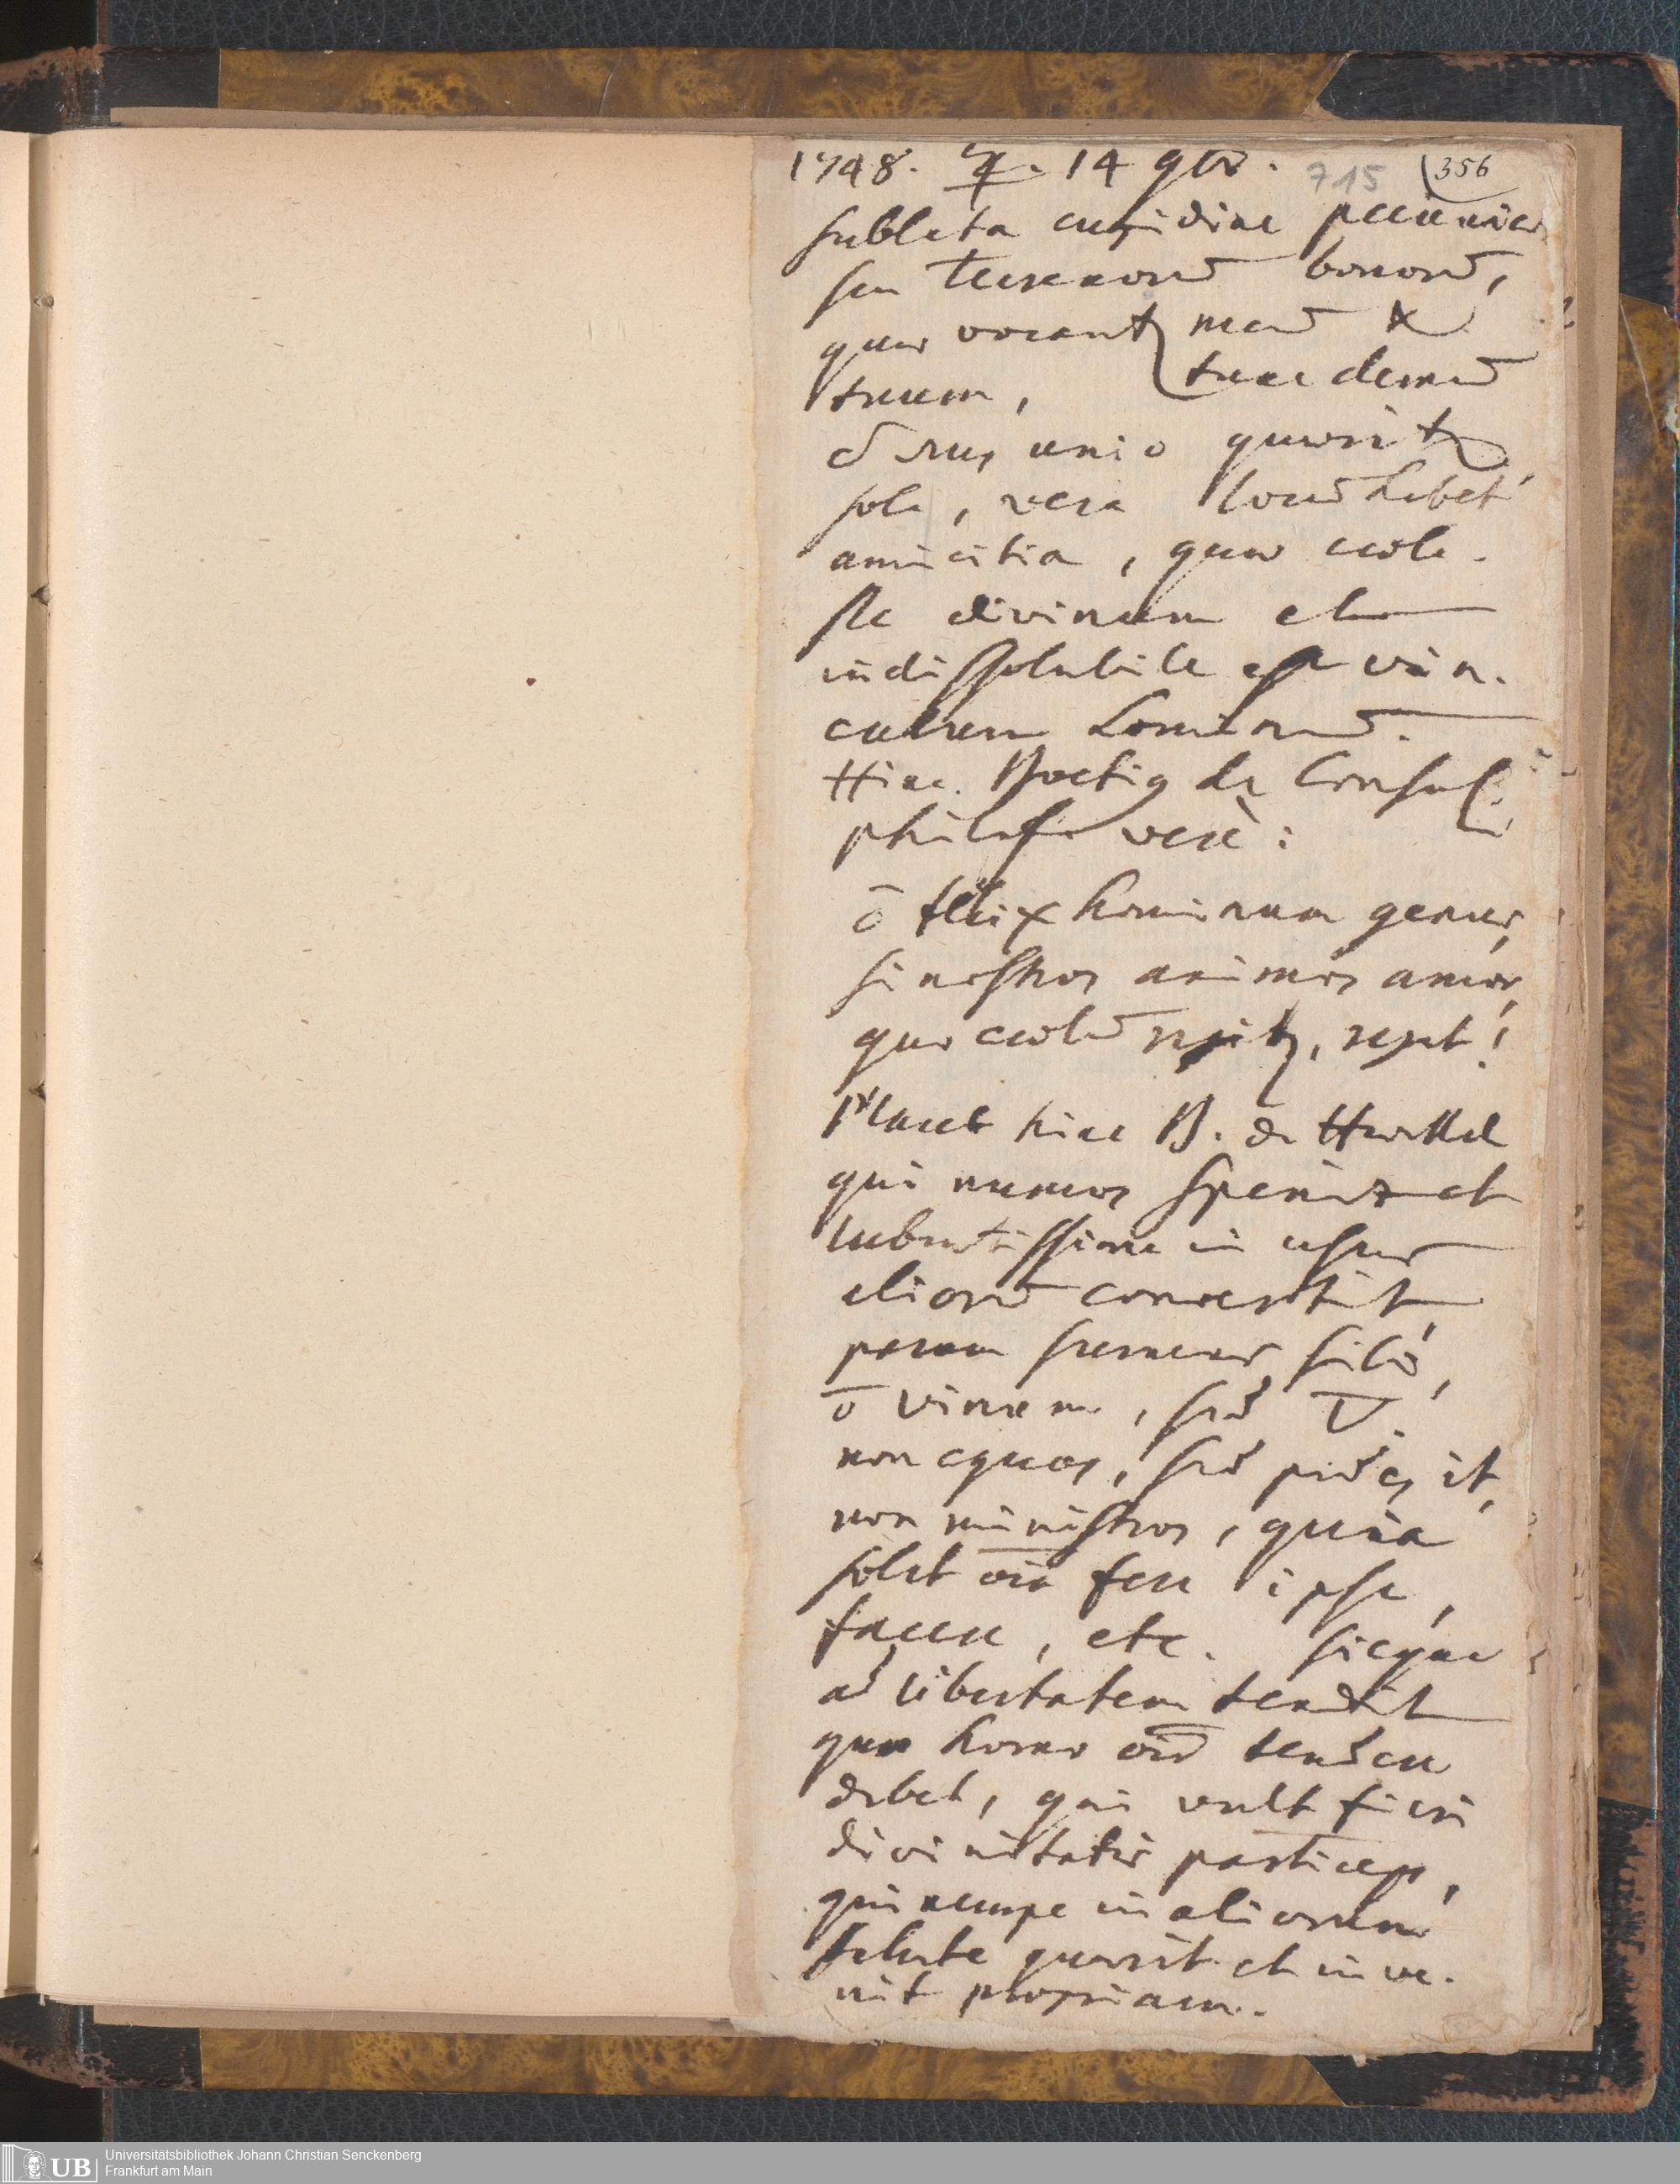 1748. ♃. 14 9br. 715 356
sublata cupidine pecuniae
seu terrenorū bonorū,
quae vocant meū &
tuum, tunc demū
unio quaerit
sola, vera locū habet
amicitia, quae coele-
ste divinum et
indissolubile est vin-
culum hominū.
Hinc Boetig de Consol.
philos. verè:
ō felix hominum genus,
si nostros animos amor,
quo coelū regit, regat!
Placet hinc B. de Haeckel
qui numos spernit et
lubentissime in usum
aliorū convertit,
parum sumens sibi,
ō vinum, sed
non equos, sed it,
non ministros, quia
solet oīa fere ipse
facere, etc. sicque
ad libertatem tendit
quo homo oīs tendere
debet, qui vult fieri
divinitatis particeps,
qui nempe in aliorum
salute quaerit et inve-
nit propriam.
UB Universitätsbibliothek Johann Christian Senckenberg
Frankfurt am Main